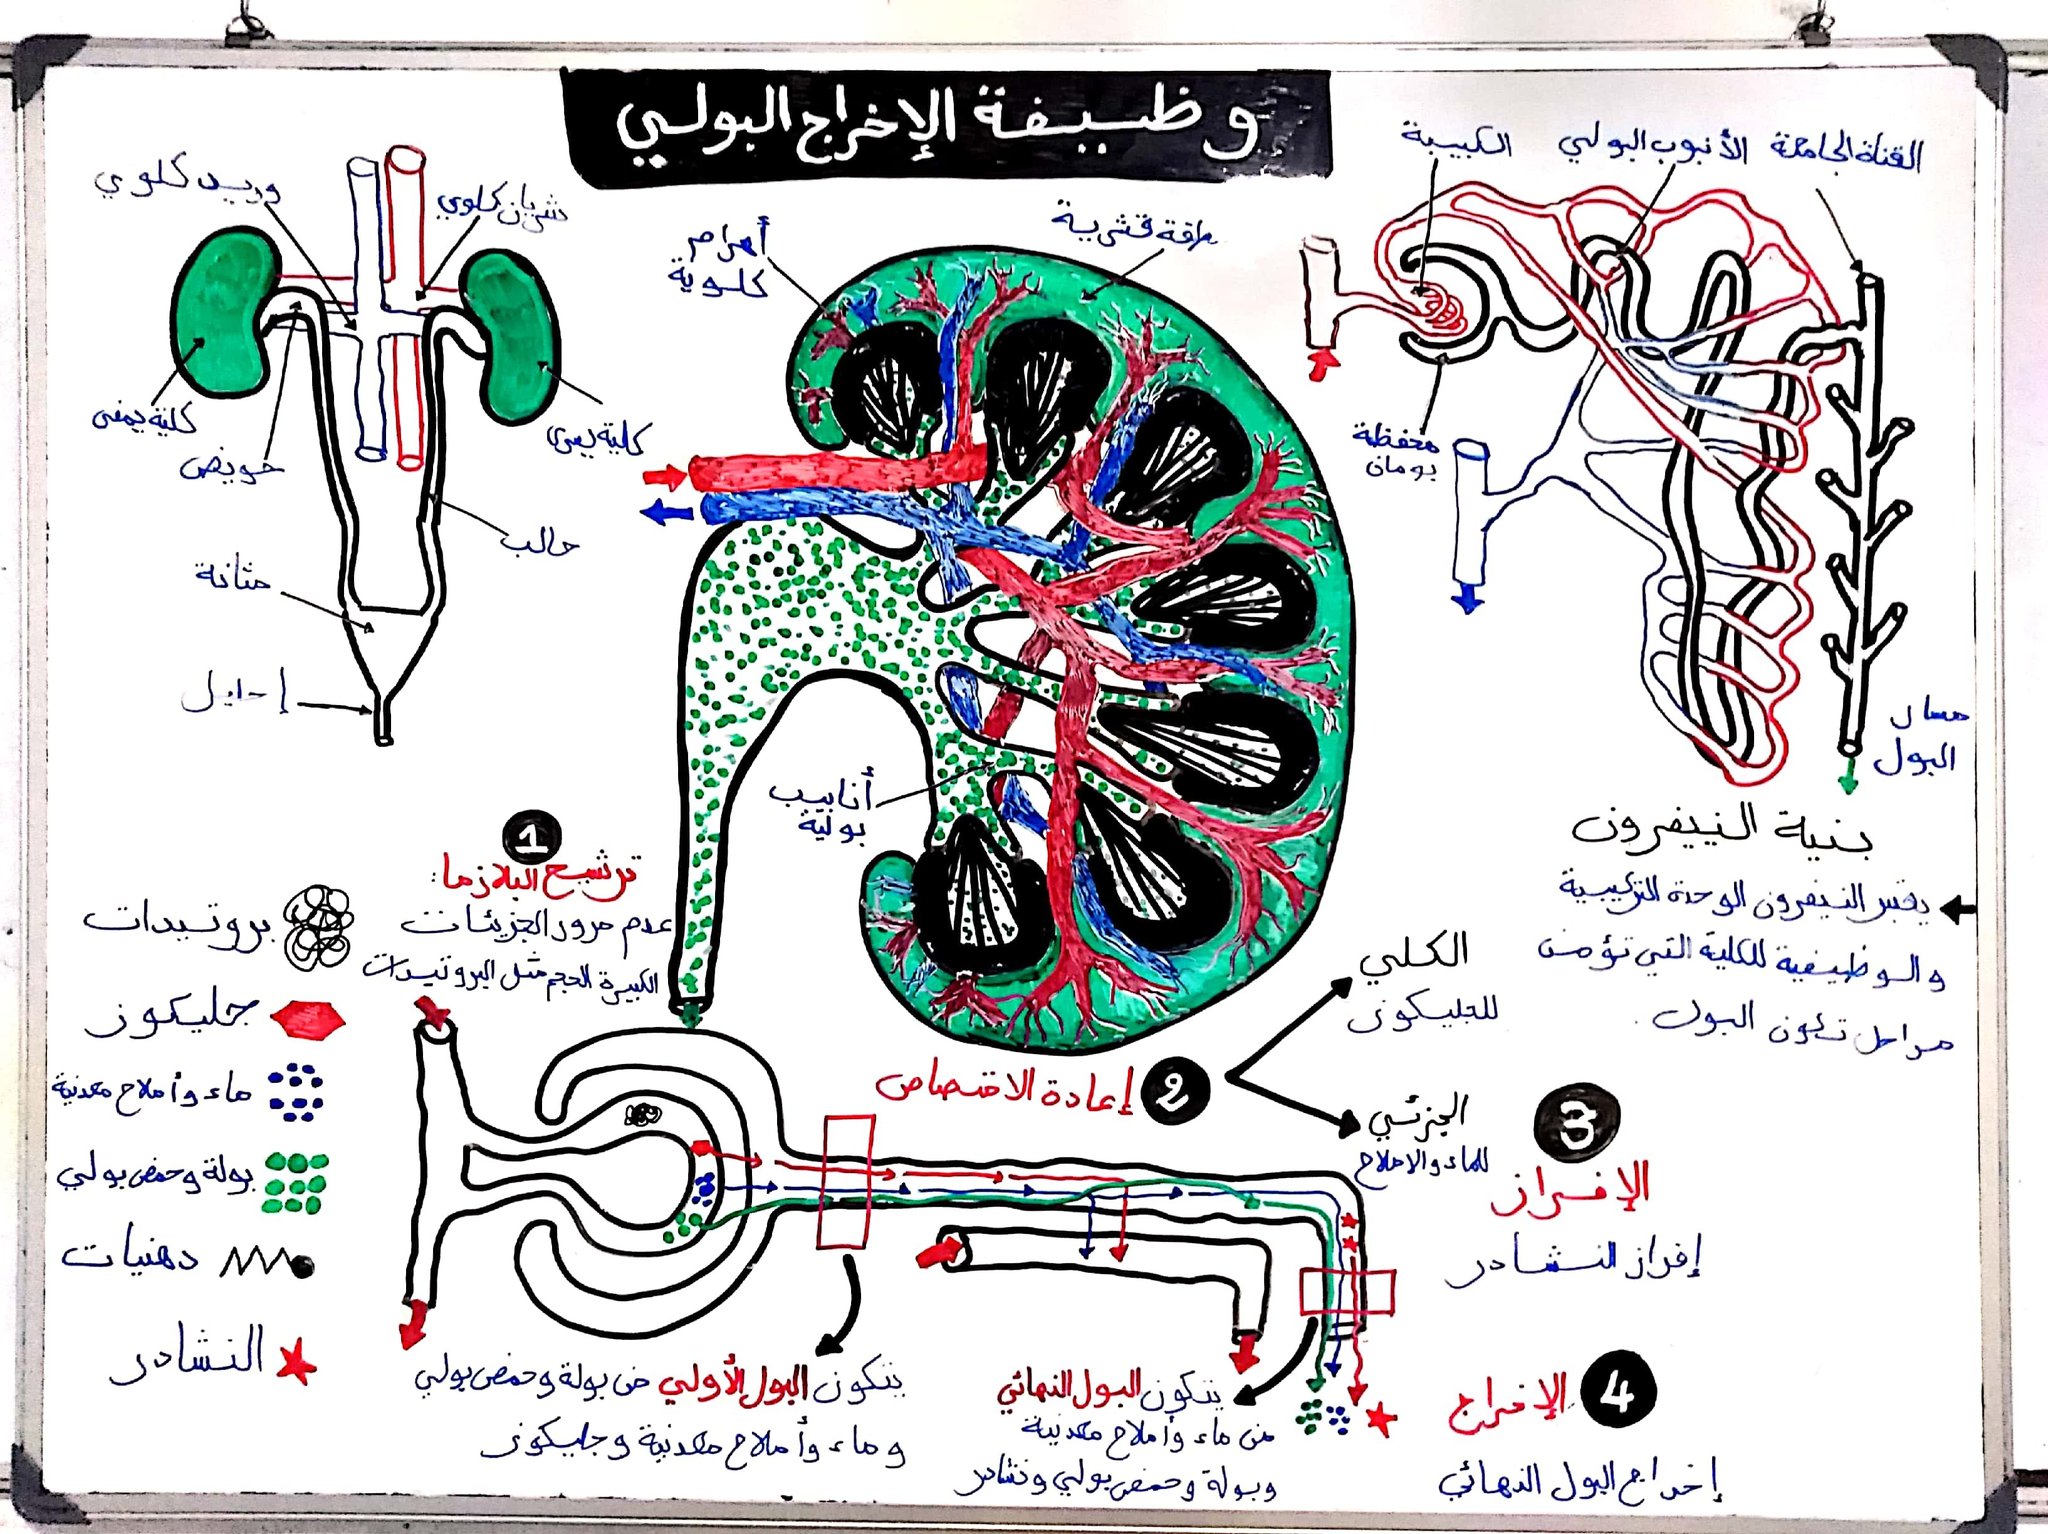 وظيفة الإخراج البولي
القناة الجامعة
الأنبوب البولي
الكبيبة
محفظة
بومان
مسار
البول
بنية النيفرون
يعتبر النيفرون الوحدة التركيبية
والوظيفية للكلية التي تؤمن
مراحل تكون البول.
طاقة قشرية
أهرام
كلوية
أنابيب
بولية
شريان كلوي
وريد كلوي
كلية يمنى
كلية يسرى
حويض
حالب
مثانة
إحليل
1
ترشيح البلازما:
عدم مرور الجزيئات
الكبيرة الحجم مثل البروتيدات
بروتيدات
جليكوز
ماء وأملاح معدنية
بولة وحمض بولي
دهنيات
النشادر
2
إعادة الاقتصاص
الكلي
للجليكوز
الجزئي
للماء والاملاح
3
الإفراز
إفراز النشادر
4
الإفراج
إخراج البول النهائي
يتكون البول النهائي
من ماء وأملاح معدنية
وبولة وحمض بولي ونشادر
يتكون البول الأولي من بولة وحمض بولي
وماء وأملاح معدنية وجليكوز